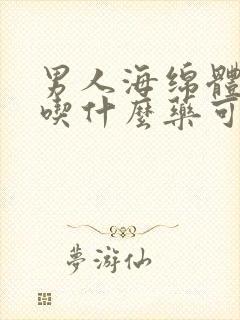 男人海绵體
喫什麼藥可
夢游仙